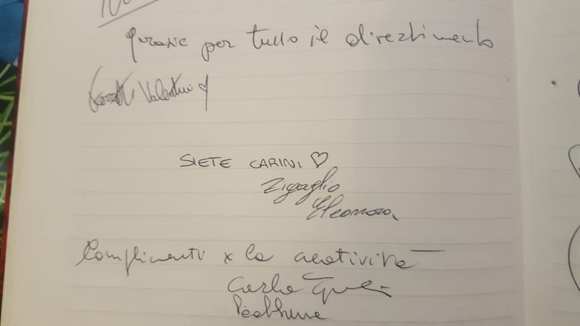 Grazie per tutto il divertimento
Valentina
SIETE CARINI ♡
Zigaglio
Eleonora
Complimenti x la creatività
Carla